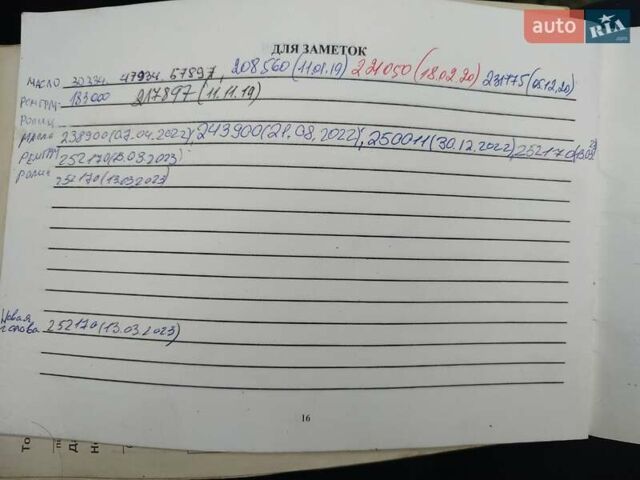 auto RIA
ДЛЯ ЗАМЕТОК
масло 30334. 47934. 67897, 208560 (11.01.19) 221050 (18.02.20) 231775 (05.12.20)
183000 217897 (11.11.19)
Ролик
масло 238900 (07.04.2022), 243900 (21.08.2022), 250011 (30.12.2022), 252170 (13.03
252170 (13.03.2023)
Ролик 252170 (13.03.2023)
Новая
голова 252170 (13.03.2023)
16